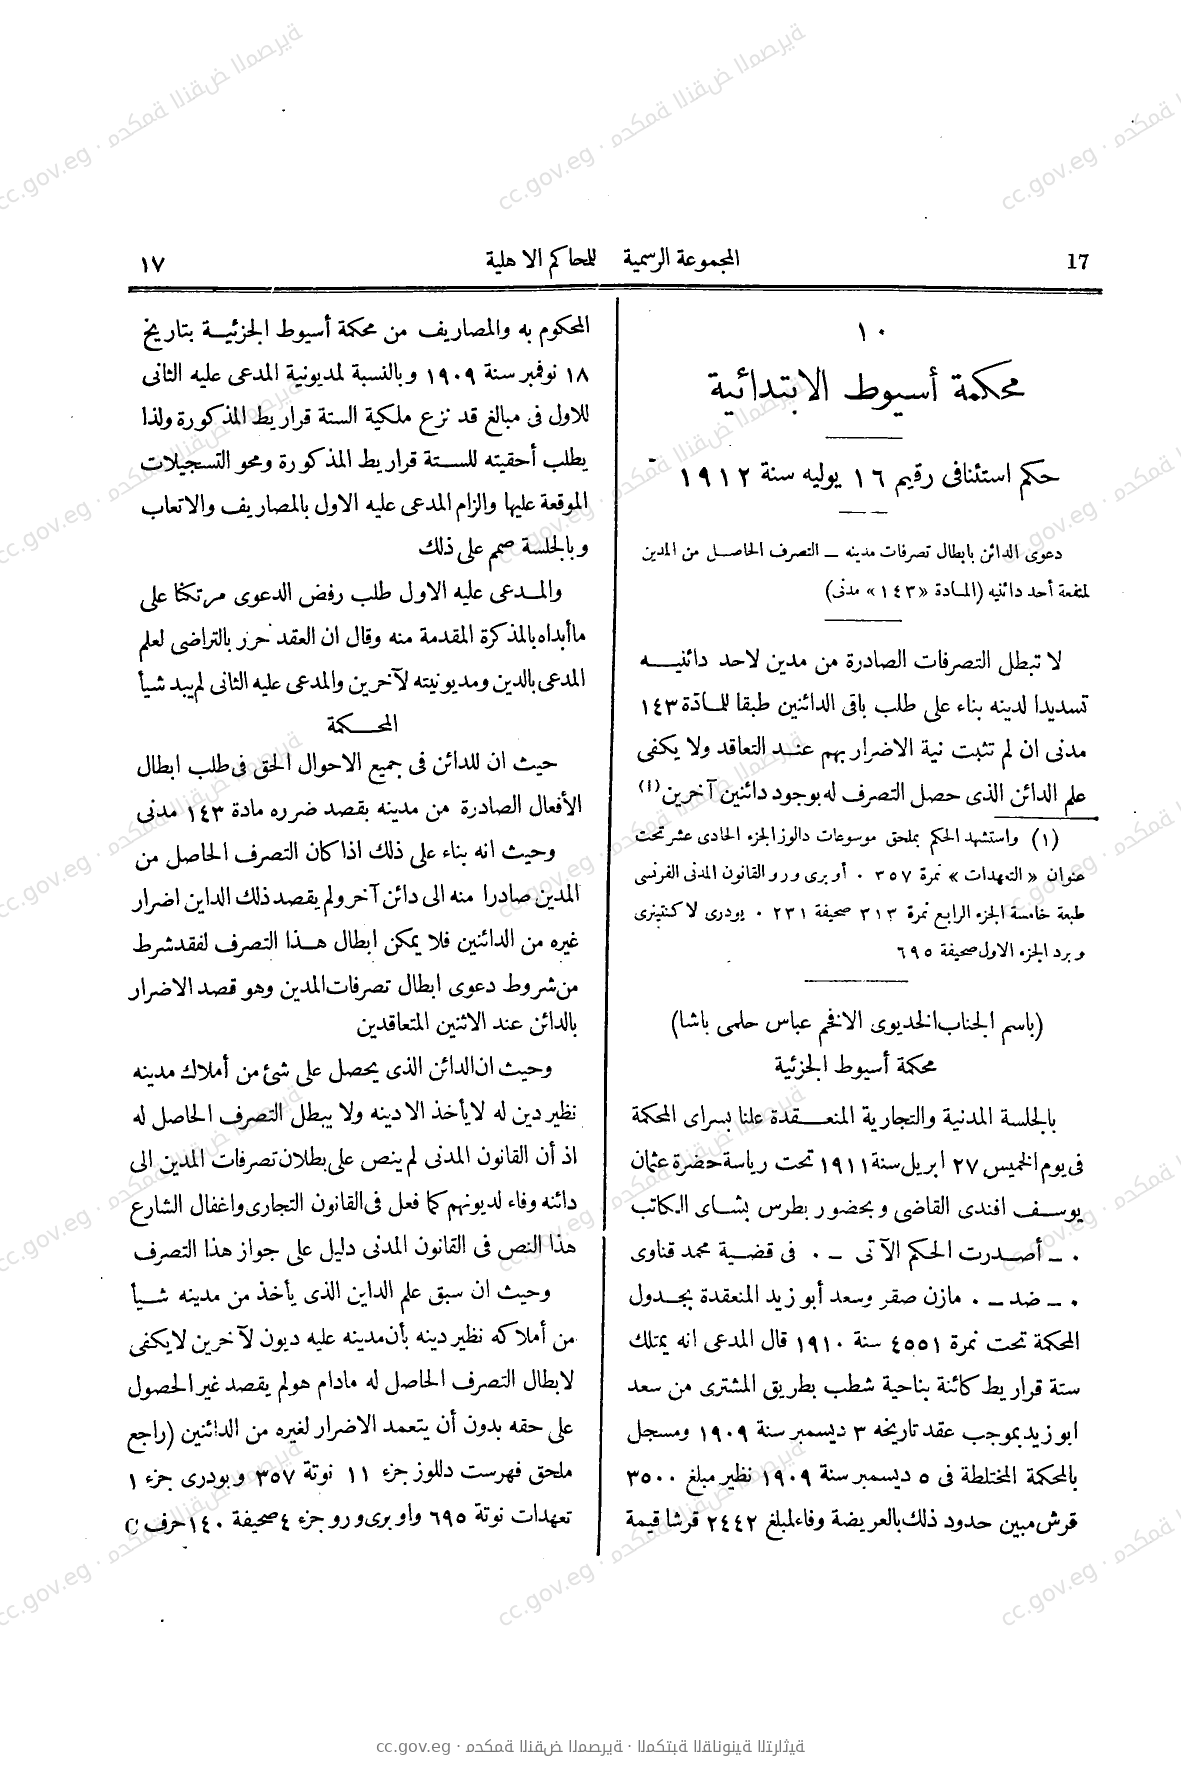 17 المجموعة الرسمية للمحاكم الاهلية ١٧
١٠
محكمة أسيوط الابتدائية
حكم استئنافى رقيم ١٦ يوليه سنة ١٩١٢
دعوى الدائن بابطال تصرفات مدينه — التصرف الحاصل من المدين
لمنفعة أحد دائنيه (المادة «١٤٣» مدنى)
لا تبطل التصرفات الصادرة من مدين لاحد دائنيه
تسديدا لدينه بناء على طلب باقى الدائنين طبقا للمادّة ١٤٣
مدنى ان لم تثبت نية الاضرار بهم عند التعاقد ولا يكفى
علم الدائن الذى حصل التصرف له بوجود دائنين آخرين (١)
(١) واستشهد الحكم بملحق موسوعات دالوز الجزء الحادى عشر تحت
عنوان «التعهدات» نمرة ٣٥٧ ٠ أوبرى ورو القانون المدنى الفرنسى
طبعة خامسة الجزء الرابع نمرة ٣١٣ صحيفة ٢٣١ ٠ بودرى لاكنتينرى
وبرد الجزء الاول صحيفة ٦٩٥
(باسم الجناب الخديوى الافخم عباس حلمى باشا)
محكمة أسيوط الجزئية
بالجلسة المدنية والتجارية المنعقدة علنا بسراى المحكمة
فى يوم الخميس ٢٧ ابريل سنة ١٩١١ تحت رياسة حضرة عثمان
يوسف افندى القاضى وبحضور بطرس بشاى الكاتب
٠ — أصدرت الحكم الآتى — ٠ فى قضية محمد قناوى
٠ — ضد — ٠ مازن صقر وسعد أبو زيد المنعقدة بجدول
المحكمة تحت نمرة ٤٥٥١ سنة ١٩١٠ قال المدعى انه يمتلك
ستة قراريط كائنة بناحية شطب بطريق المشترى من سعد
ابو زيد بموجب عقد تاريخه ٣ ديسمبر سنة ١٩٠٩ ومسجل
بالمحكمة المختلطة فى ٥ ديسمبر سنة ١٩٠٩ نظير مبلغ ٣٥٠٠
قرش مبين حدود ذلك بالعريضة وفاء لمبلغ ٢٤٤٢ قرشا قيمة
المحكوم به والمصاريف من محكمة أسيوط الجزئية بتاريخ
١٨ نوفمبر سنة ١٩٠٩ وبالنسبة لمديونية المدعى عليه الثانى
للاول فى مبالغ قد نزع ملكية الستة قراريط المذكورة ولذا
يطلب أحقيته للستة قراريط المذكورة ومحو التسجيلات
الموقعة عليها والزام المدعى عليه الاول بالمصاريف والاتعاب
وبالجلسة صمم على ذلك
والمدعى عليه الاول طلب رفض الدعوى مرتكنا على
ما أبداه بالمذكرة المقدمة منه وقال ان العقد حرر بالتراضى لعلم
المدعى بالدين ومديونيته لآخرين والمدعى عليه الثانى لم يبد شيأ
المحكمة
حيث ان للدائن فى جميع الاحوال الحق فى طلب ابطال
الأفعال الصادرة من مدينه بقصد ضرره مادة ١٤٣ مدنى
وحيث انه بناء على ذلك اذا كان التصرف الحاصل من
المدين صادرا منه الى دائن آخر ولم يقصد ذلك الداين اضرار
غيره من الدائنين فلا يمكن ابطال هذا التصرف لفقد شرط
من شروط دعوى ابطال تصرفات المدين وهو قصد الاضرار
بالدائن عند الاثنين المتعاقدين
وحيث ان الدائن الذى يحصل على شئ من أملاك مدينه
نظير دين له لا يأخذ الا دينه ولا يبطل التصرف الحاصل له
اذ أن القانون المدنى لم ينص على بطلان تصرفات المدين الى
دائنه وفاء لديونهم كما فعل فى القانون التجارى واغفال الشارع
هذا النص فى القانون المدنى دليل على جواز هذا التصرف
وحيث ان سبق علم الداين الذى يأخذ من مدينه شيأ
من أملاكه نظير دينه بأن مدينه عليه ديون لآخرين لا يكفى
لابطال التصرف الحاصل له مادام هو لم يقصد غير الحصول
على حقه بدون أن يتعمد الاضرار لغيره من الدائنين (راجع
ملحق فهرست دللوز جزء ١١ نوتة ٣٥٧ وبودرى جزء ١
تعهدات نوتة ٦٩٥ واوبرى ورو جزء ٤ صحيفة ١٤٠ حرف C
cc.gov.eg · محكمة النقض المصرية · المكتبة القانونية التراثية